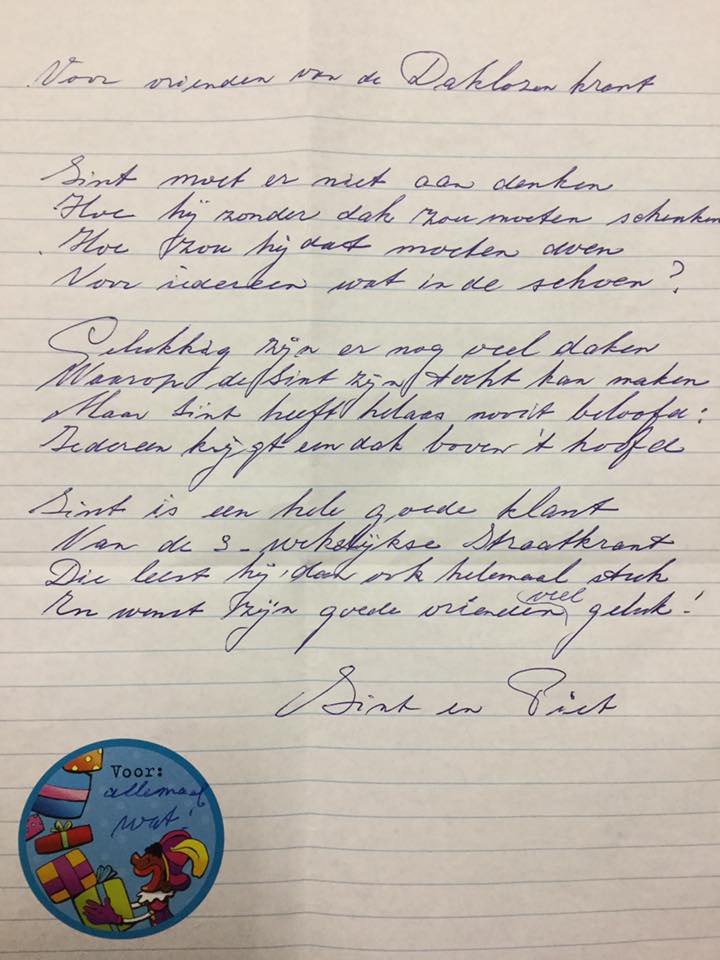 Voor vrienden van de Daklozen krant
Sint moet er niet aan denken
Hoe hij zonder dak zou moeten schenken
Hoe zou hij dat moeten doen
Voor iedereen wat in de schoen?
Gelukkig zijn er nog veel daken
Waarop de Sint zijn tocht kan maken
Maar Sint heeft helaas nooit beloofd:
Iedereen krijgt een dak boven 't hoofd
Sint is een hele goede klant
Van de 3-wekelijkse Straatkrant
Die leest hij dan ook helemaal stuk
En wenst zijn goede vrienden veel geluk!
Sint en Piet
Voor:
allemaal
wat!